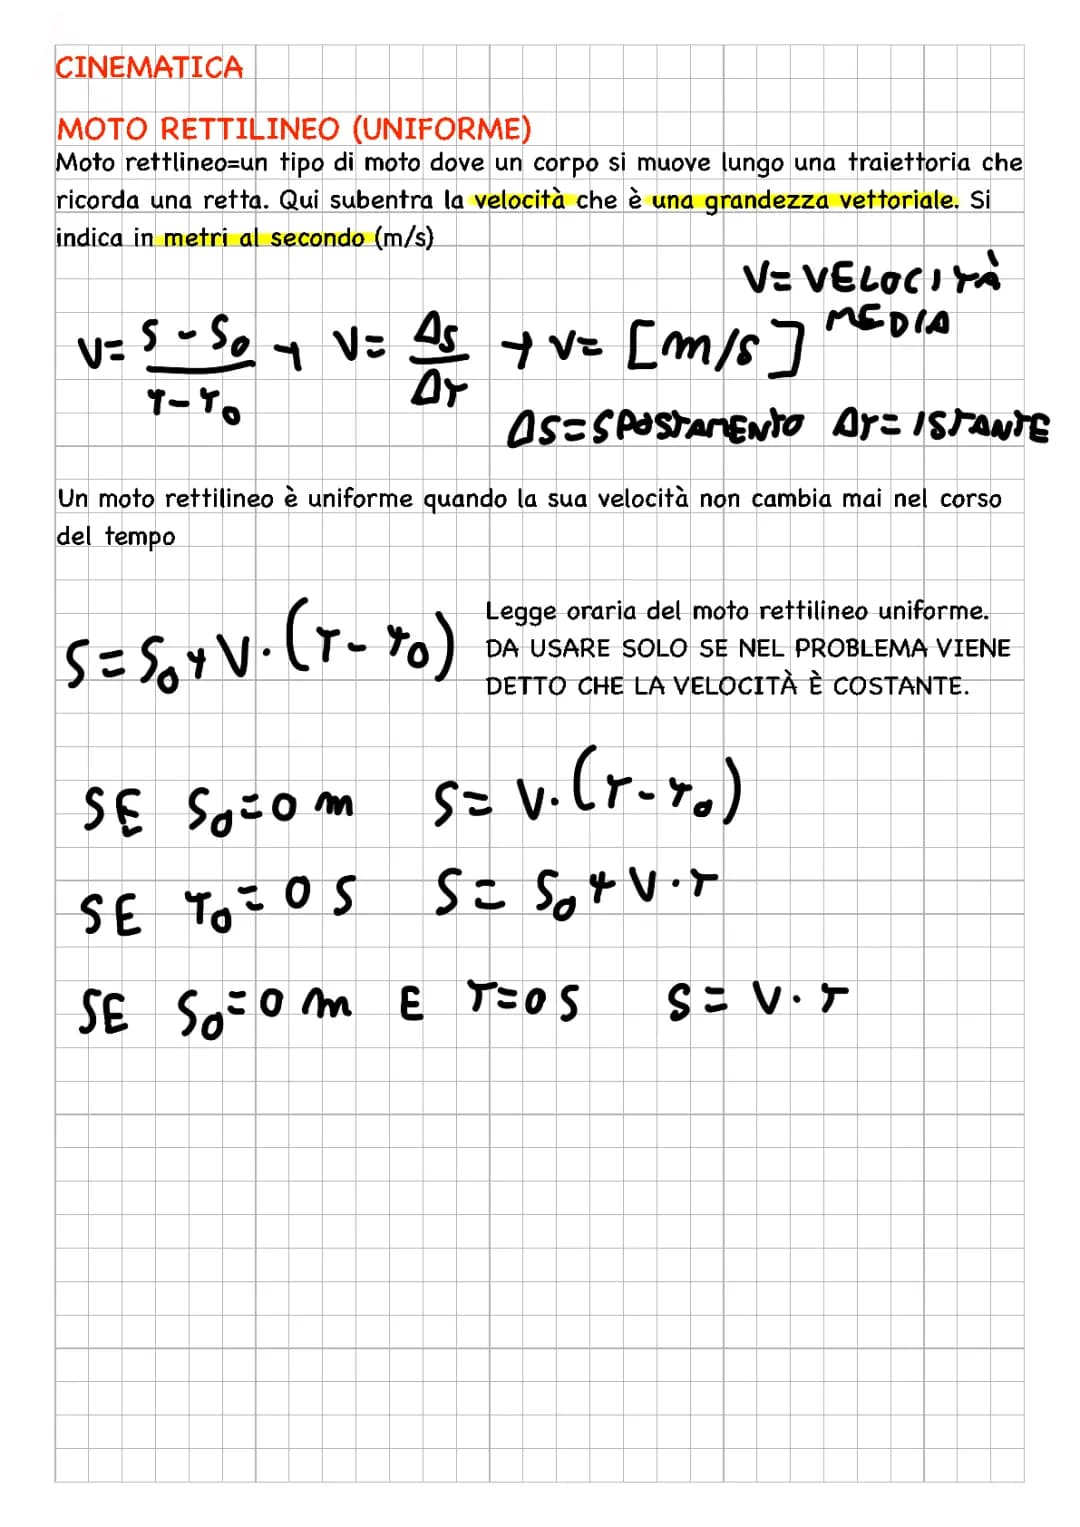 CINEMATICA
MOTO RETTILINEO (UNIFORME)
Moto rettlineo=un tipo di moto dove un corpo si muove lungo una traiettoria che
ricorda una retta. Qui subentra la velocità che è una grandezza vettoriale. Si
indica in metri al secondo (m/s)
V= VELOCITÀ
MEDIA
V= S - S₀ / T - T₀ → V= ΔS / ΔT → V= [m/s]
ΔS=SPOSTAMENTO ΔT= ISTANTE
Un moto rettilineo è uniforme quando la sua velocità non cambia mai nel corso
del tempo
S=S₀+V·(T-T₀)
Legge oraria del moto rettilineo uniforme.
DA USARE SOLO SE NEL PROBLEMA VIENE
DETTO CHE LA VELOCITÀ È COSTANTE.
SE S₀=0 m S= V·(T-T₀)
SE T₀=0 S S= S₀+V·T
SE S₀=0 m E T=0 S S= V·T